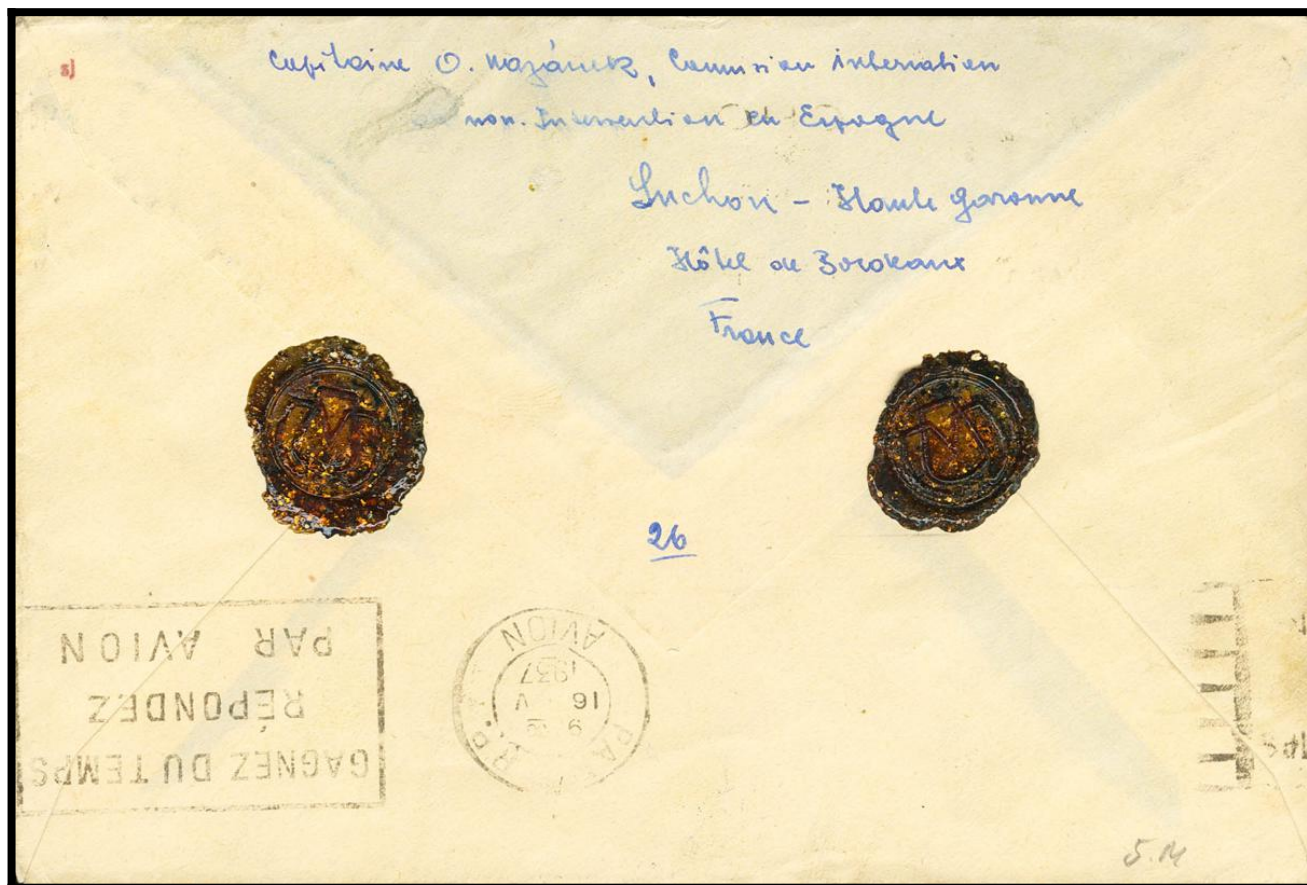 Capitaine O. Kazámek, Commision internation
non. Intervention en Espagne
Luchon - Haute Garonne
Hôtel de Bordeaux
France
26
GAGNEZ DU TEMPS
RÉPONDEZ
PAR AVION
9
16 V
1937
AVION
5.M